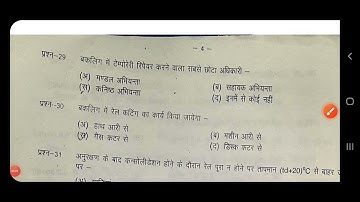 - 4 -
प्रश्न-29 बकलिंग में टेम्पोरेरी रिपेयर करने वाला सबसे छोटा अधिकारी –
(अ) मण्डल अभियन्ता (ब) सहायक अभियन्ता
(स) कनिष्ठ अभियन्ता (द) इनमें से कोई नहीं
प्रश्न-30 बकलिंग में रेल कटिंग का कार्य किया जायेगा –
(अ) हाथ आरी से (ब) मशीन आरी से
(स) गैस कटर से (द) डिस्क कटर से
प्रश्न-31 अनुरक्षण के बाद कन्सोलीडेशन होने के दौरान रेल पूरा न होने पर तापमान (td+20)⁰C से बाहर
पर –